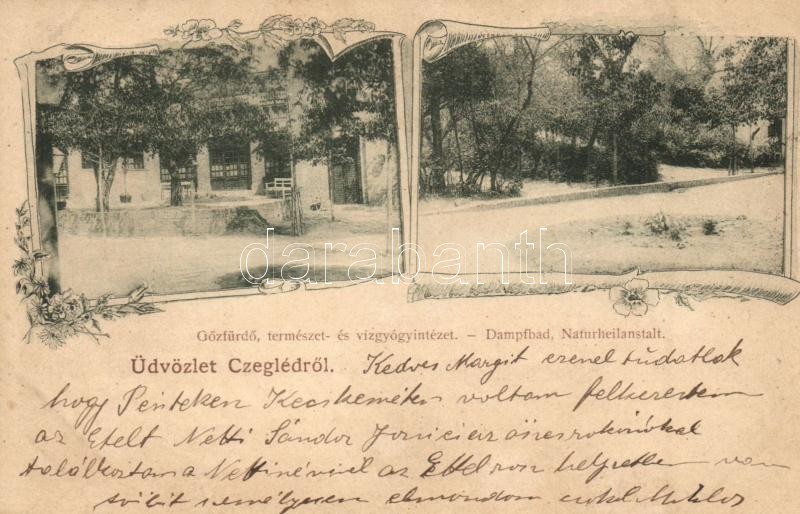 darabanth
Gőzfürdő, természet- és vizgyógyintézet. – Dampfbad, Naturheilanstalt.
Üdvözlet Czeglédről. Kedves Margit ezenel tudatlak
hogy Penteken Kecskeméten voltam felkerestem
az Etelt Netti Sándor összes rokonokkal
találkoztam a Nettinénivel az Etel rosz helyzetben van
többit személyesen elmondom Miklos